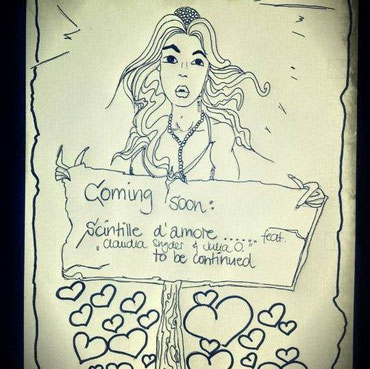 Coming soon:
Scintille d'amore ...... feat.
"Claudia Snyder & Julia O."..
to be continued